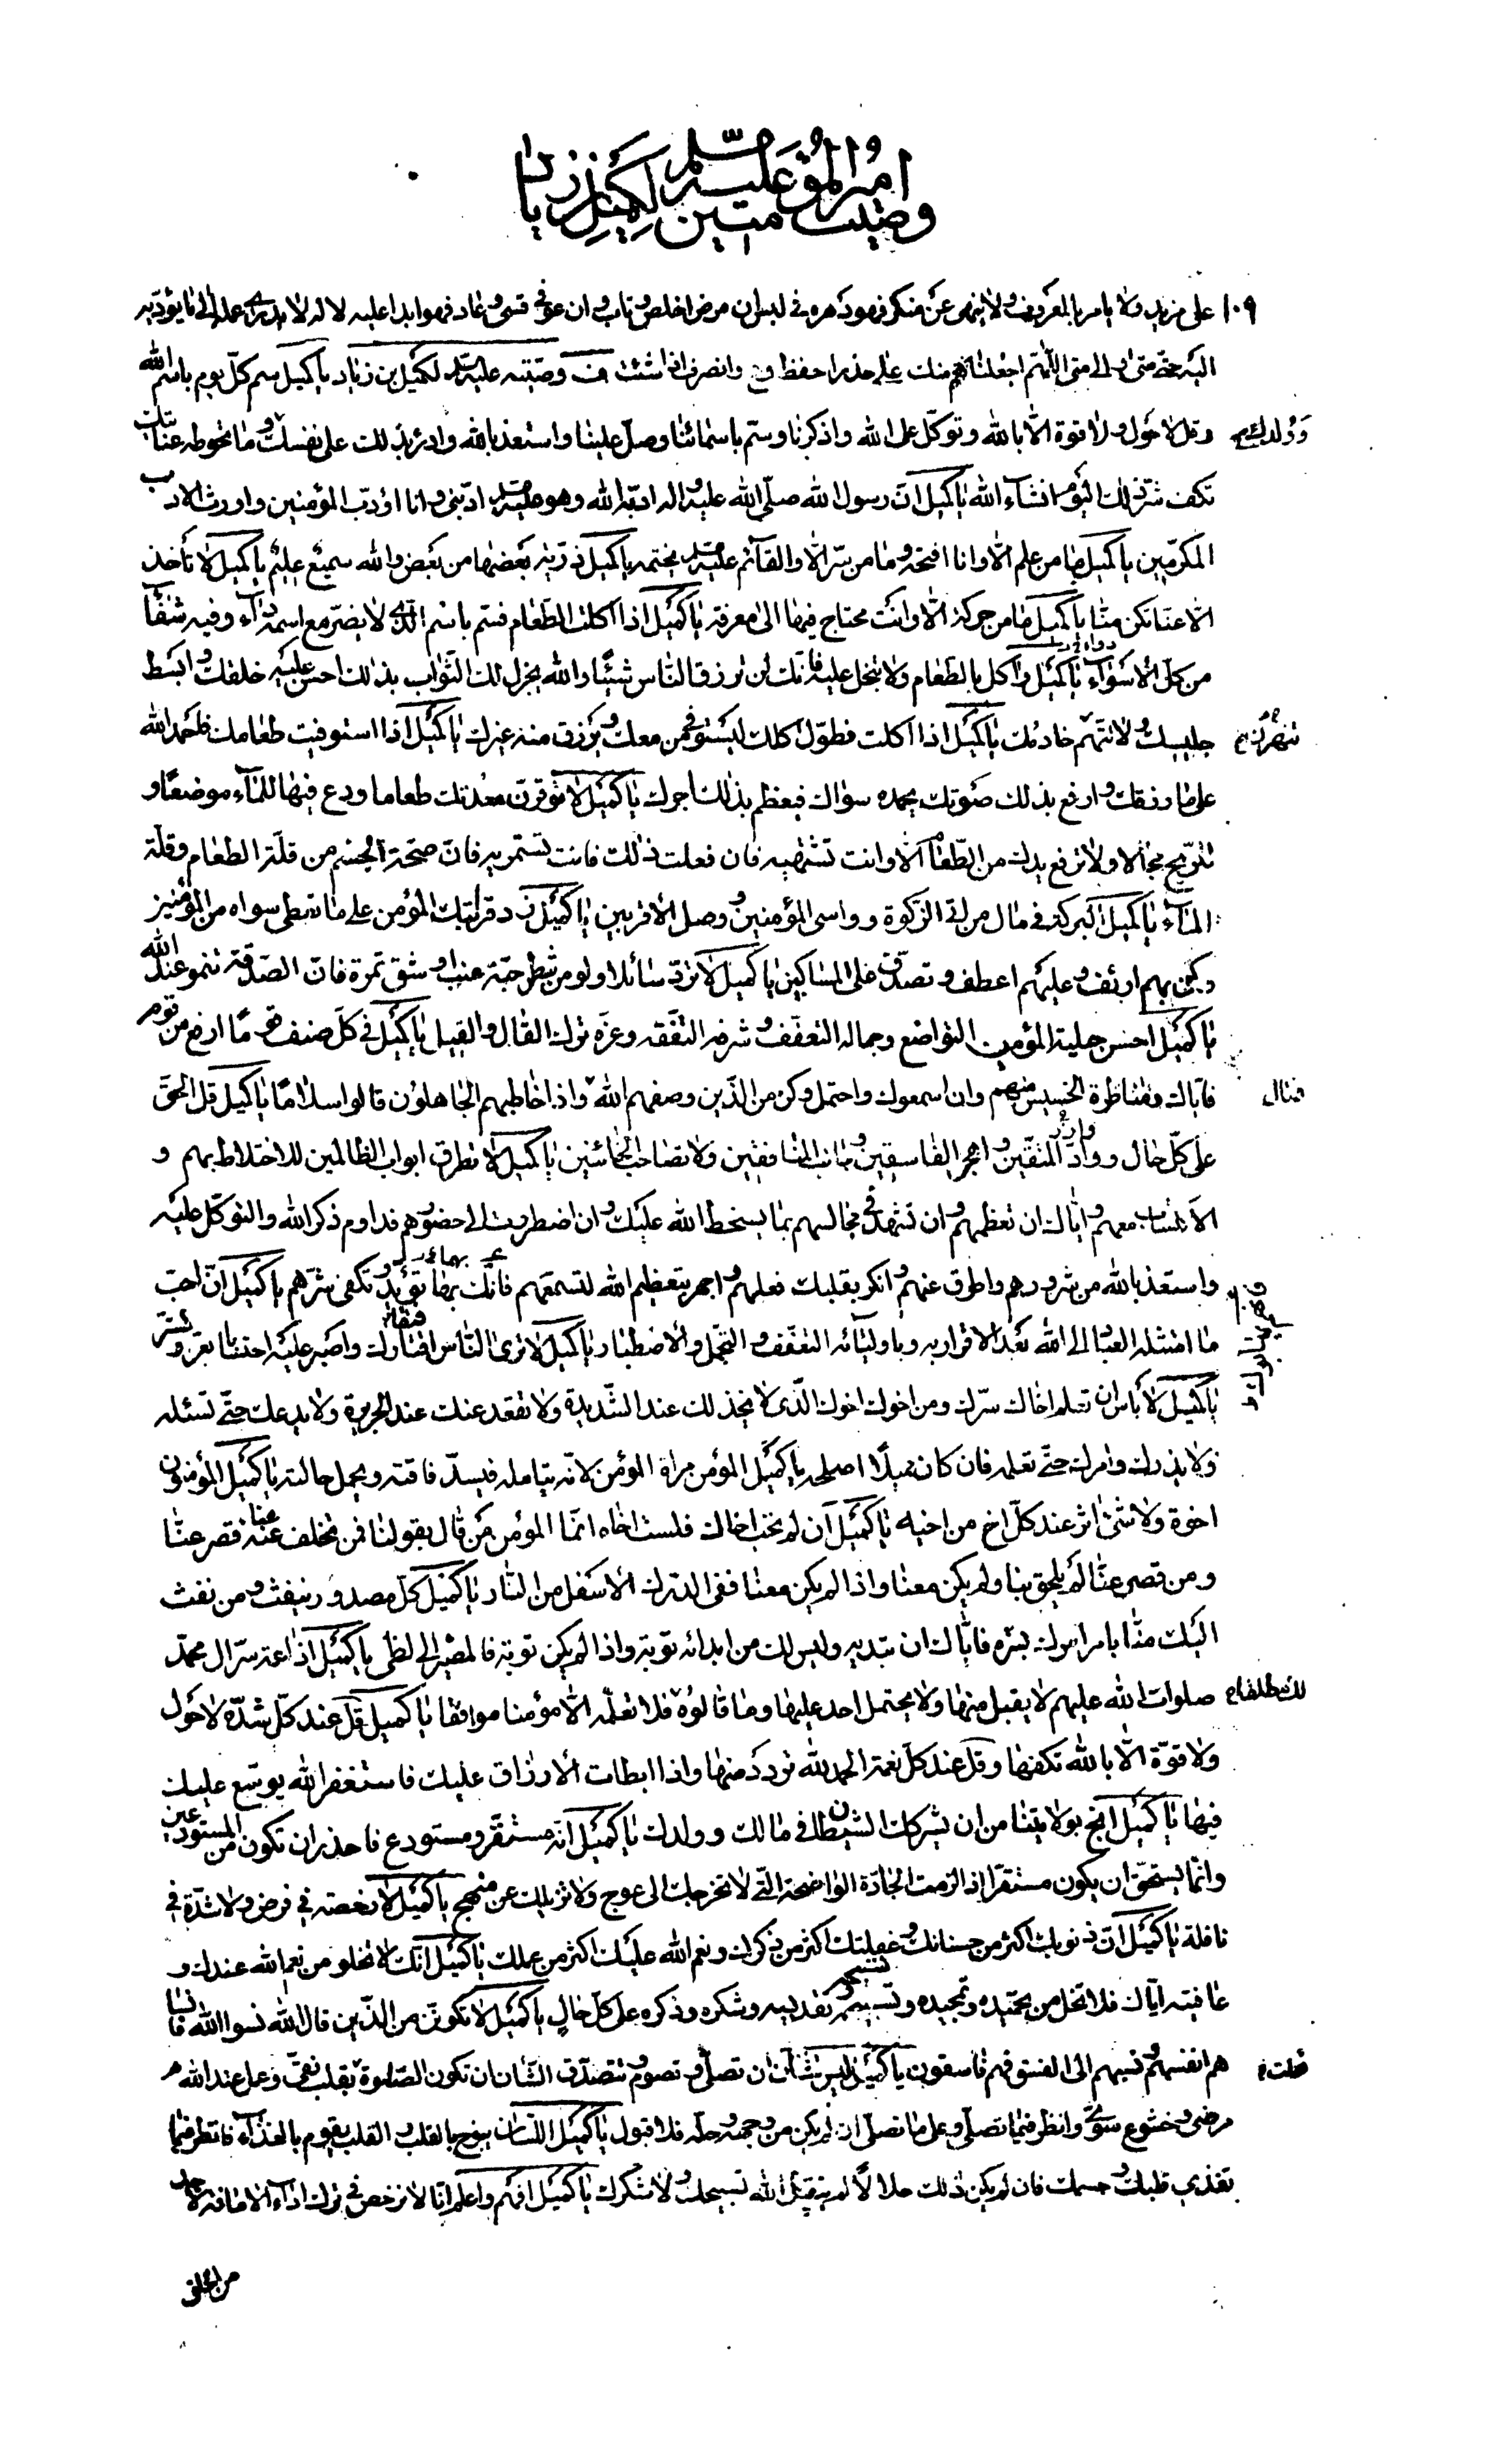 وصيت امير المؤمنين عليه السلم لكميل بن زياد
١٠٩ على مزيد ولا يامر بالمعروف ولا ينهى عن منكر فهو دهره في لبس ان مرض اخلص وتاب وان عوفي قسى وعاد فهو ابدا عليه لا له لا يدرى عمله الى ما يؤديه
اليه حتى متى والى متى اللهم اجعلنا منك على حذر احفظ وع وانصرف اذا شئت وصيته عليه السلم لكميل بن زياد يا كميل سم كل يوم باسم الله
وقل لا حول ولا قوة الا بالله وتوكل على الله واذكرنا وسم باسمائنا وصل علينا واستعذ بالله وادرء بذلك على نفسك وما تحوطه عنايتك
وولدك
تكف شر ذلك اليوم انشاء الله يا كميل ان رسول الله صلى الله عليه واله ادبه الله وهو عليه السلم ادبنى وانا اؤدب المؤمنين واورث الادب
المكرمين يا كميل ما من علم الا وانا افتحه وما من سر الا والقآئم عليه السلم يختمه يا كميل ذرية بعضها من بعض والله سميع عليم يا كميل لا تأخذ
الا عنا تكن منا يا كميل ما من حركة الا وانت محتاج فيها الى معرفة يا كميل اذا اكلت الطعام فسم باسم الذى لا يضر مع اسمه داء وفيه شفآء
من كل الاسوآء يا كميل واكل بالطعام ولا تبخل عليه فانك لن ترزق الناس شيئا والله يجزل لك الثواب بذلك احسن عليه خلقك وابسط
جليسك ولا تتهم خادمك يا كميل اذا اكلت فطول اكلك ليستوفى من معك ويرزق منه غيرك يا كميل اذا استوفيت طعامك فاحمد الله
تنهرن
على ما رزقك وارفع بذلك صوتك يحمده سواك فيعظم بذلك اجرك يا كميل لا توقرن معدتك طعاما ودع فيها للمآء موضعا و
للريح مجالا ولا ترفع يدك من الطعام الا وانت تشتهيه فان فعلت ذلك فانت تستمريه فان صحة الجسم من قلة الطعام وقلة
المآء يا كميل البركة في مال من اتى الزكوة وواسى المؤمنين ووصل الاقربين يا كميل زد قرابتك المؤمن على ما تعطى سواه من المؤمنين
وكن بهم ارئف وعليهم اعطف وتصدق على المساكين يا كميل لا ترد سائلا ولو من شطر حبة عنب او شق تمرة فان الصدقة تنمو عند الله
يا كميل احسن حلية المؤمن التواضع وجماله التعفف وشرفه التفقه وعزه ترك القال والقيل يا كميل في كل صنف قوما ارفع من قوم
فاياك ومناظرة الخسيس منهم وان اسمعوك واحتمل وكن من الذين وصفهم الله واذا خاطبهم الجاهلون قالوا سلاما يا كميل قل الحق
على كل حال وواد المتقين واهجر الفاسقين وجانب المنافقين ولا تصاحب الخائنين يا كميل لا تطرق ابواب الظالمين للاختلاط بهم و
الاكتساب معهم واياك ان تعظمهم وان تشهد في مجالسهم بما يسخط الله عليك وان اضطررت الى حضورهم فداوم ذكر الله والتوكل عليه
واستعذ بالله من شرورهم واطرق عنهم وانكر بقلبك فعلهم واجهر بتعظيم الله لتسمعهم فانك بها تؤيد وتكفى شرهم يا كميل ان احب
ما امتثله العباد الى الله بعد الاقرار به وباوليآئه التعفف والتجمل والاصطبار يا كميل لا ترى الناس اقتارك واصبر عليه احتسابا بعز وتستر
يا كميل لا بأس ان تعلم اخاك سرك ومن اخوك اخوك الذى لا يخذلك عند الشديدة ولا يقعد عنك عند الجريرة ولا يدعك حتى تسئله
ولا يذرك وامرك حتى تعلمه فان كان مميلا اصلحه يا كميل المؤمن مراة المؤمن لانه يتامله فيسد فاقته ويجمل حالته يا كميل المؤمنون
اخوة ولا شئ اثر عند كل اخ من اخيه يا كميل ان لم تحب اخاك فلست اخاه انما المؤمن من قال بقولنا فمن تخلف عنه قصر عنا
ومن قصر عنا لم يلحق بنا ولم يكن معنا واذا لم يكن معنا ففى الدرك الاسفل من النار يا كميل كل مصدور ينفث ومن نفث
اليك منا بامر امرك بستره فاياك ان تبديه وليس لك من ابدائه توبة واذا لم يكن توبة فالمصير الى لظى يا كميل اذاعة سر ال محمد
صلوات الله عليهم لا يقبل منها ولا يحتمل احد عليها وما قالوه فلا تعلمه الا مؤمنا موافقا يا كميل قل عند كل شدة لا حول
ولا قوة الا بالله تكفها وقل عند كل نعمة الحمد لله تردد منها واذا ابطات الارزاق عليك فاستغفر الله يوسع عليك
فيها يا كميل انج بولايتنا من ان يشركك الشيطان في مالك وولدك يا كميل انه مستقر ومستودع فاحذر ان تكون من المستودعين
وانما يستحق ان يكون مستقرا اذا لزمت الجادة الواضحة التى لا تخرجك الى عوج ولا تزيلك عن منهج يا كميل لا رخصة في فرض ولا شدة في
نافلة يا كميل ان ذنوبك اكثر من حسناتك وغفلتك اكثر من ذكرك ونعم الله عليك اكثر من عملك يا كميل انك لا تخلو من نعم الله عندك و
عافيته اياك فلا تخل من تحميده وتمجيده وتسبيحه وتقديسه وشكره وذكره على كل حال يا كميل لا تكونن من الذين قال الله نسوا الله فانسا
هم انفسهم ونسبهم الى الفسق فهم فاسقون يا كميل ليس الشأن ان تصلى وتصوم وتتصدق الشان ان تكون الصلوة بقلب نقى وعمل عند الله
مرضى وخشوع سوى وانظر فيما تصلى وعلى ما تصلى ان لم يكن من وجهه وحله فلا قبول يا كميل اللسان ينزح بالقلب والقلب يقوم بالغذاء فانظر فيما
تغذى قلبك وجسمك فان لم يكن ذلك حلالا لم يقبل الله تسبيحك ولا شكرك يا كميل افهم واعلم انا لا نرخص في ترك ادآء الامانة لاحد
من الخلق